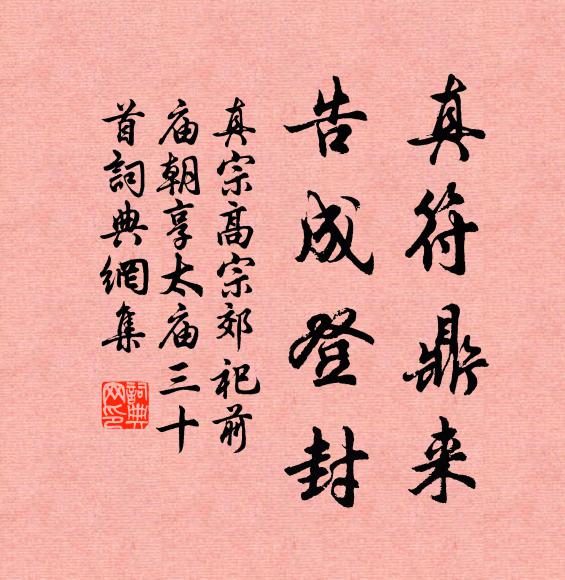 真符鼎来
告成登封
真宗高宗郊祀前
庙朝享太庙三十
首詞典網集
詞典網印